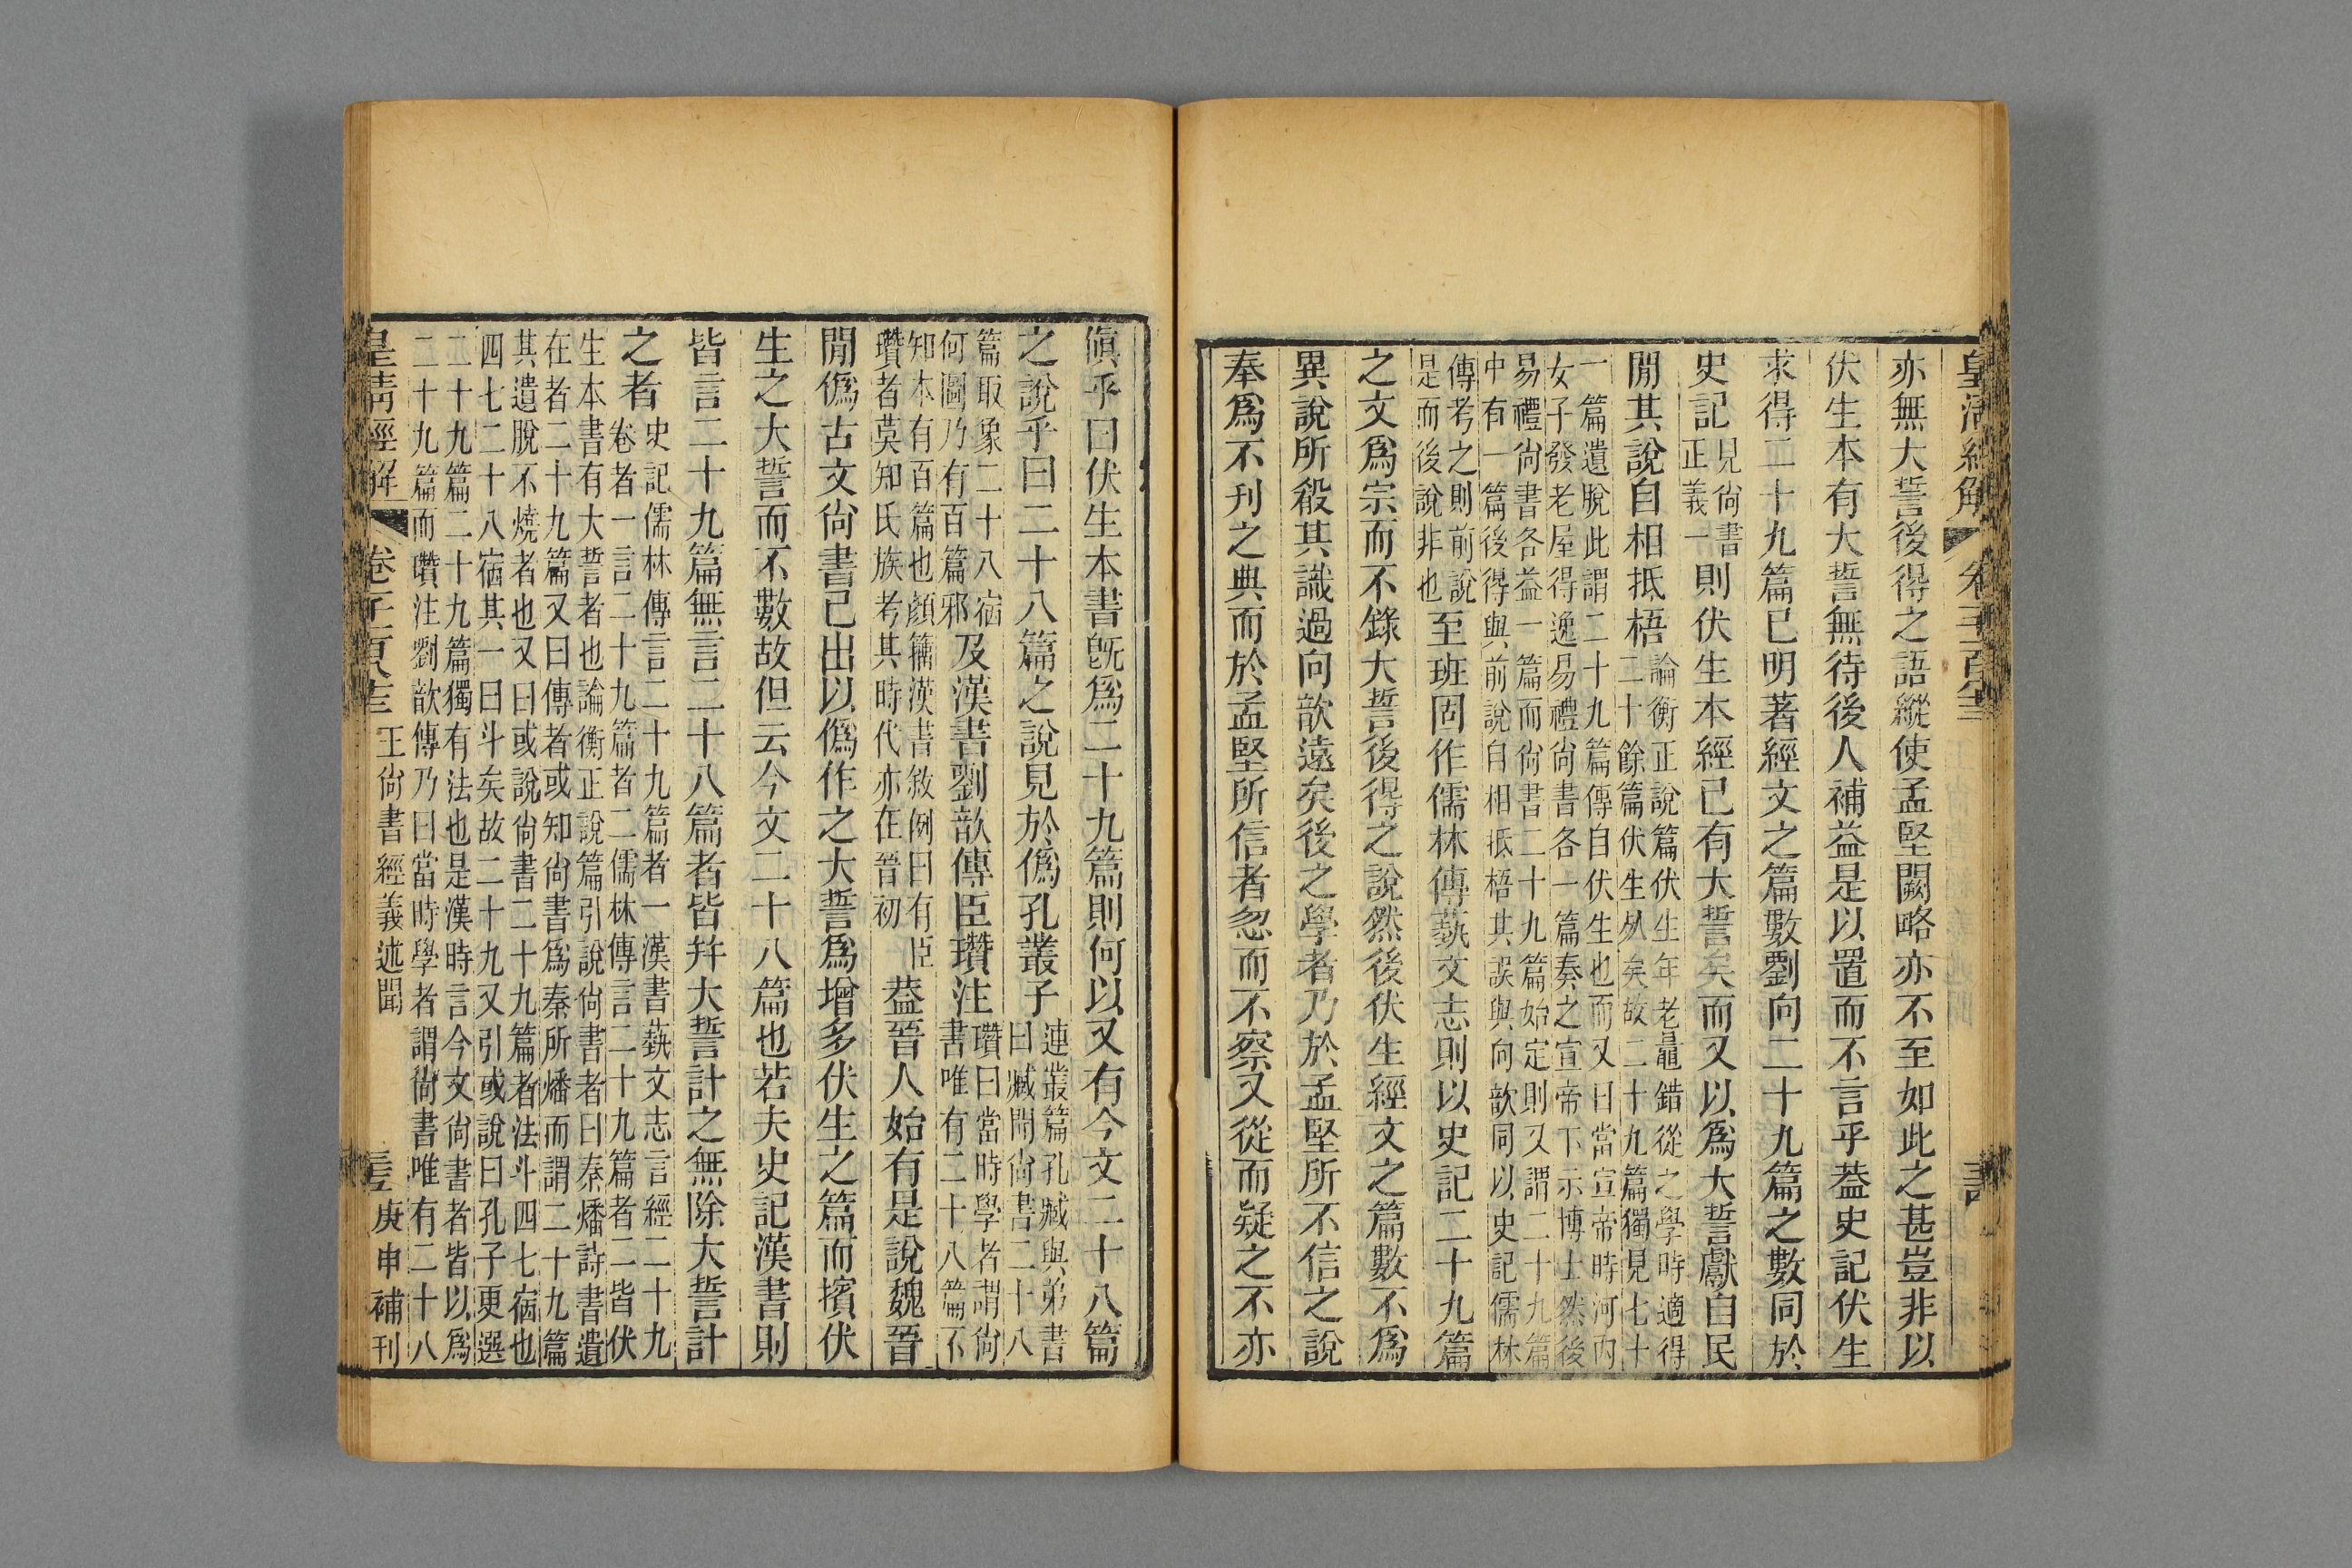 亦無大誓後得之語縱使孟堅闕略亦不至如此之甚豈非以
伏生本有大誓無待後人補益是以置而不言乎葢史記伏生
求得二十九篇已明著經文之篇數劉向二十九篇之數同於
史記見尚書正義一則伏生本經已有大誓矣而又以爲大誓獻自民
閒其說自相抵梧論衡正說篇伏生年老鼂錯從之學時適得
二十餘篇伏生死矣故二十九篇獨見七十
一篇遺脫此謂二十九篇傳自伏生也而又曰當宣帝時河內
女子發老屋得逸易禮尚書各一篇奏之宣帝下示博士然後
易禮尚書各益一篇而尚書二十九篇始定則又謂二十九篇
中有一篇後得與前說自相抵梧其誤與向歆同以史記儒林
傳考之則前說
是而後說非也至班固作儒林傳蓺文志則以史記二十九篇
之文爲宗而不錄大誓後得之說然後伏生經文之篇數不爲
異說所殽其識過向歆遠矣後之學者乃於孟堅所不信之說
奉爲不刊之典而於孟堅所信者忽而不察又從而疑之不亦
傎乎曰伏生本書旣爲二十九篇則何以又有今文二十八篇
之說乎曰二十八篇之說見於僞孔叢子連叢篇孔臧與弟書
曰臧聞尚書二十八
篇取象二十八宿
何圖乃有百篇邪及漢書劉歆傳臣瓚注瓚曰當時學者謂尚
書唯有二十八篇不
知本有百篇也顏籀漢書敘例曰有臣
瓚者莫知氏族考其時代亦在晉初葢晉人始有是說魏晉
閒僞古文尚書已出以僞作之大誓爲增多伏生之篇而擯伏
生之大誓而不數故但云今文二十八篇也若夫史記漢書則
皆言二十九篇無言二十八篇者皆并大誓計之無除大誓計
之者史記儒林傳言二十九篇者一漢書蓺文志言經二十九
卷者一言二十九篇者二儒林傳言二十九篇者二皆伏
生本書有大誓者也論衡正說篇引說尚書者曰秦燔詩書遺
在者二十九篇又曰傳者或知尚書爲秦所燔而謂二十九篇
其遺脫不燒者也又曰或說尚書二十九篇者法斗四七宿也
四七二十八宿其一曰斗矣故二十九又引或說曰孔子更選
二十九篇二十九篇獨有法也是漢時言今文尚書者皆以爲
二十九篇而瓚注劉歆傳乃曰當時學者謂尚書唯有二十八
皇清經解
王尚書經義述聞
庚申補刊